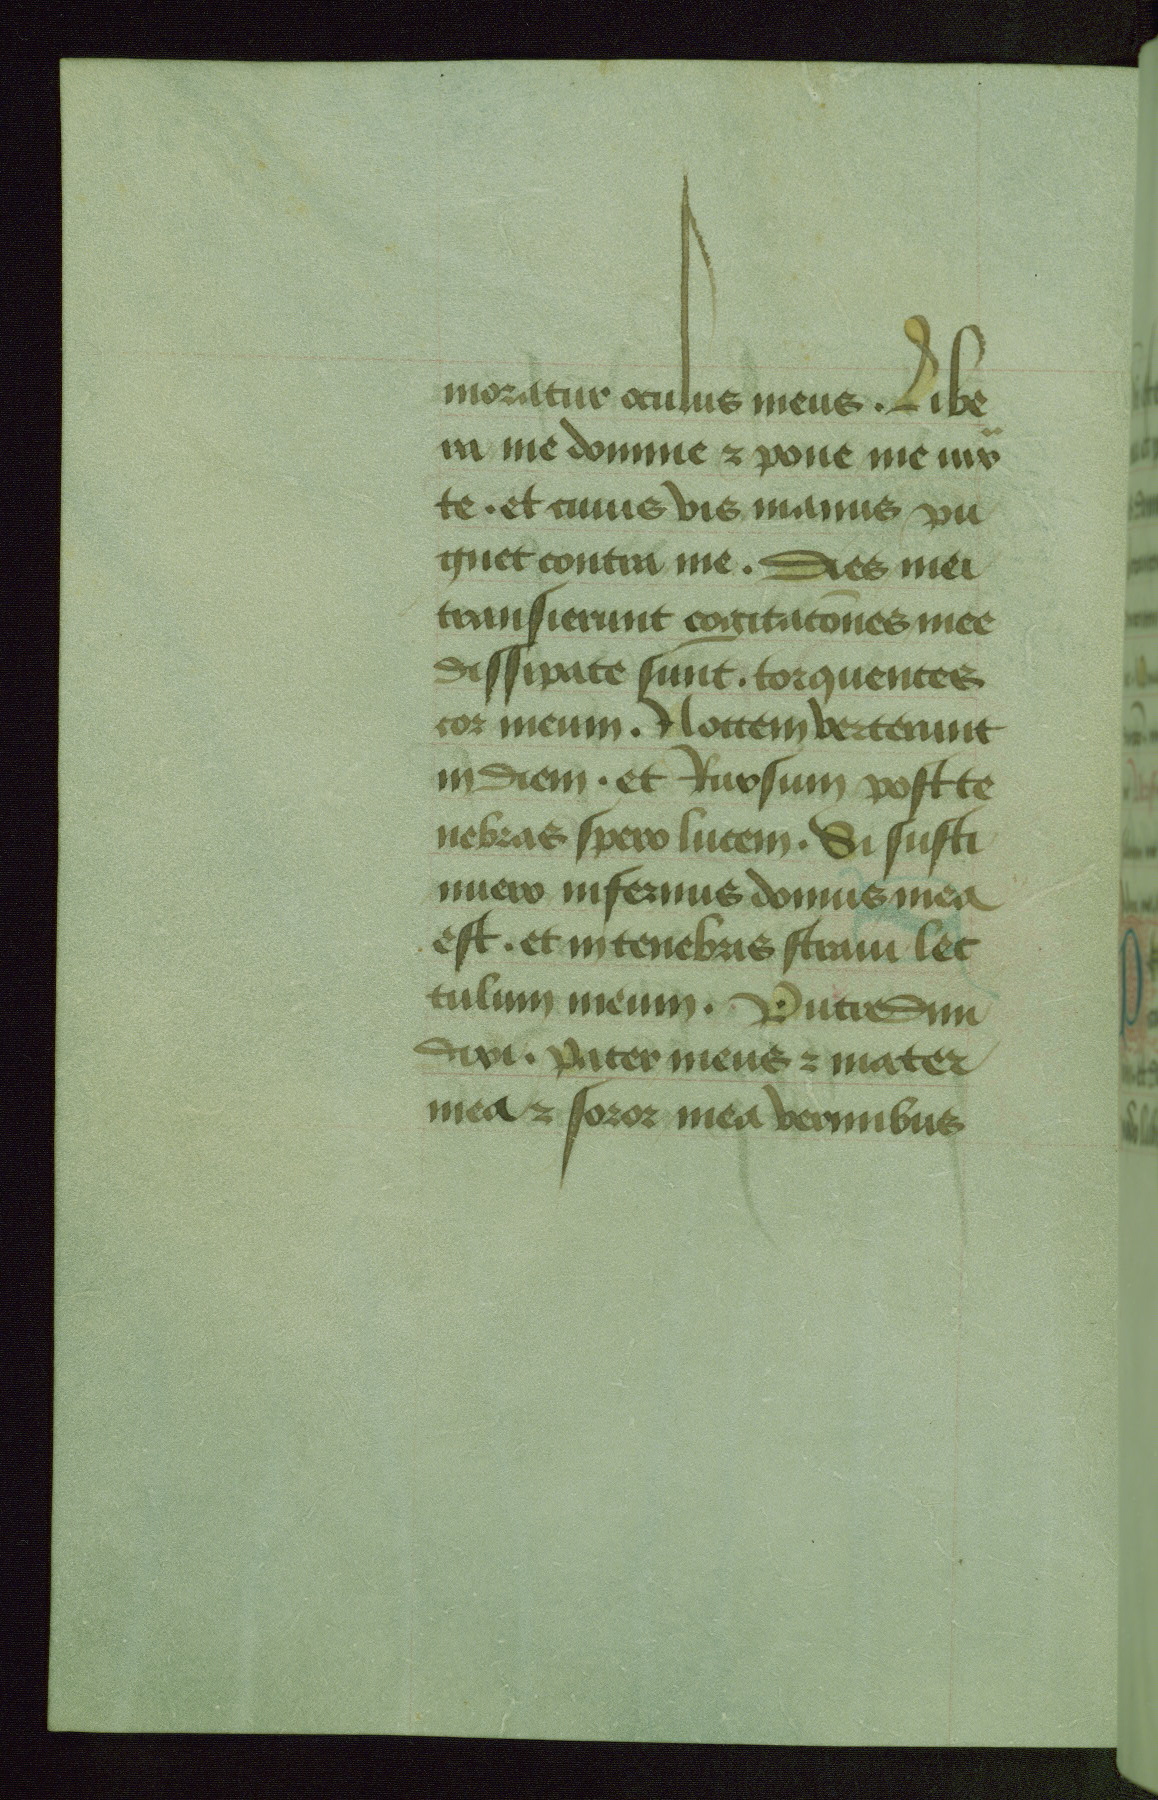 moratur oculus meus. Libe
ra me domine ⁊ pone me iux
te. et cuius vis manus pu
gnet contra me. Dies mei
transierunt cogitatōnes mee
dissipate sunt. torquentes
cor meum. Noctem verterunt
in diem. et Rursum post te
nebras spero lucem. Si susti
nuero infernus domus mea
est. et in tenebris straui lec
tulum meum. Putredini
dixi. pater meus ⁊ mater
mea ⁊ soror mea vermibus